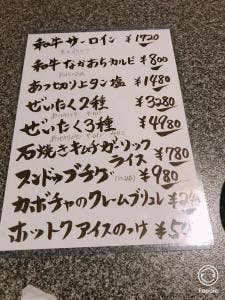 和牛サーロイン ¥1720
和牛なかおちカルビ ¥800
あつ切り上タン塩 ¥1480
ぜいたく2種 ¥3280
ぜいたく3種 ¥4980
石焼きキムチガーリック
ライス ¥780
スンドゥブチゲ ¥980
カボチャのクレームブリュレ
ホットクアイスのっけ
Foodie